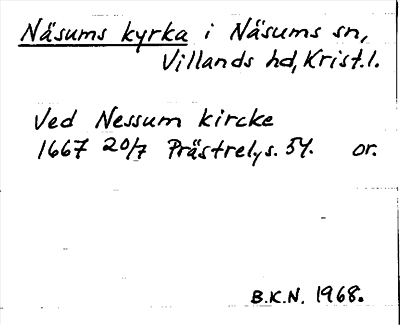 Näsums kyrka i Näsums sn,
Villands hd, Krist.l.
Ved Nessum kircke
1667 20/7 Prästrel, s. 54. or.
B.K.N. 1968.